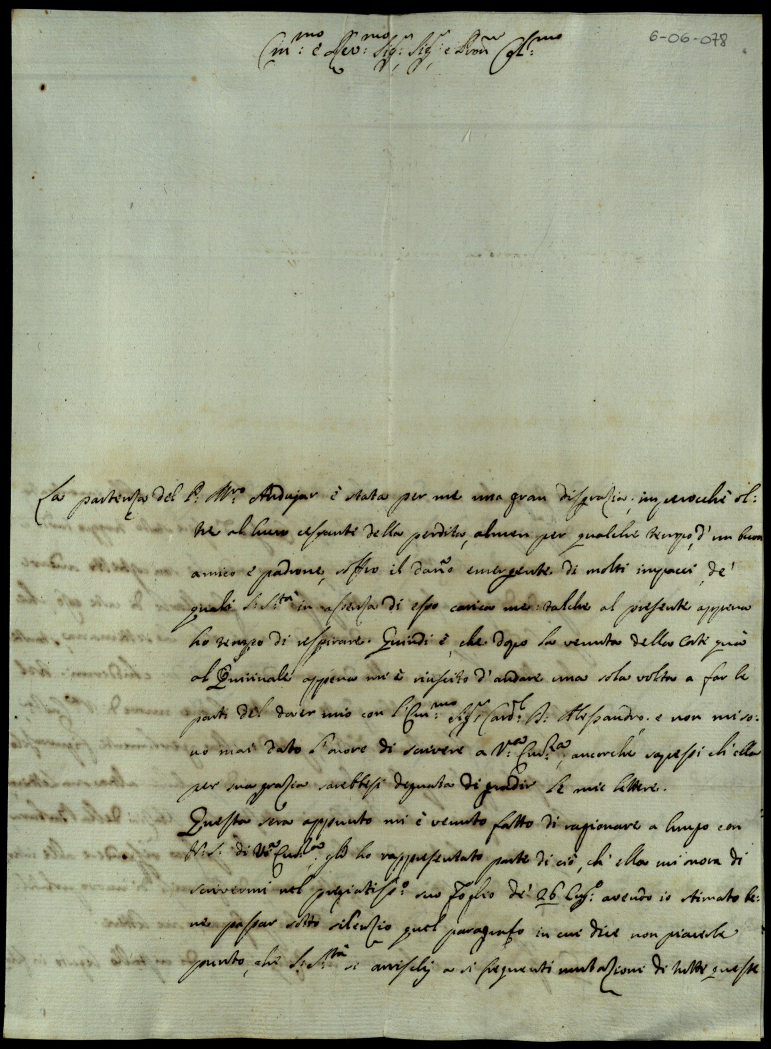 6-06-078
Em:mo e Rev:mo Sig:r Sig:r e Pron Col:mo
La partenza del P: Mro Andujar è stata per me una gran disgrazia; imperocchè ol:
tre al lucro cessante della perdita, almen per qualche tempo, d'un buon
amico e padrone, soffro il dano emergente di molti impacci, de'
quali S: S:tà in assenza di esso carica me: talche al presente appena
ho tempo di respirare. Quindi è, che dopo la venuta della Corte quà
al Quirinale appena mi è riuscito d'andare una sola volta a far le
parti del dover mio con l'Em:mo Sig:r Card:l D: Alessandro; e non mi so:
no mai dato l'onore di scrivere a V:ra Em:za, ancorchè sapessi ch'ella
per sua grazia sarebbesi degnata di gradir le mie lettere.
Questa sera appunto mi è venuto fatto di ragionare a lungo con
N: S: di V:ra Em:za; gli ho rappresentato parte di ciò, ch'ella mi onora di
scrivermi nel pregiatiss:o suo foglio de' 26 Lug:o avendo io stimato be:
ne passar sotto silenzio quel paragrafo in cui dice non piacerle
punto, che S: S:tà si arrischj a sì frequenti mutazioni di tutte queste